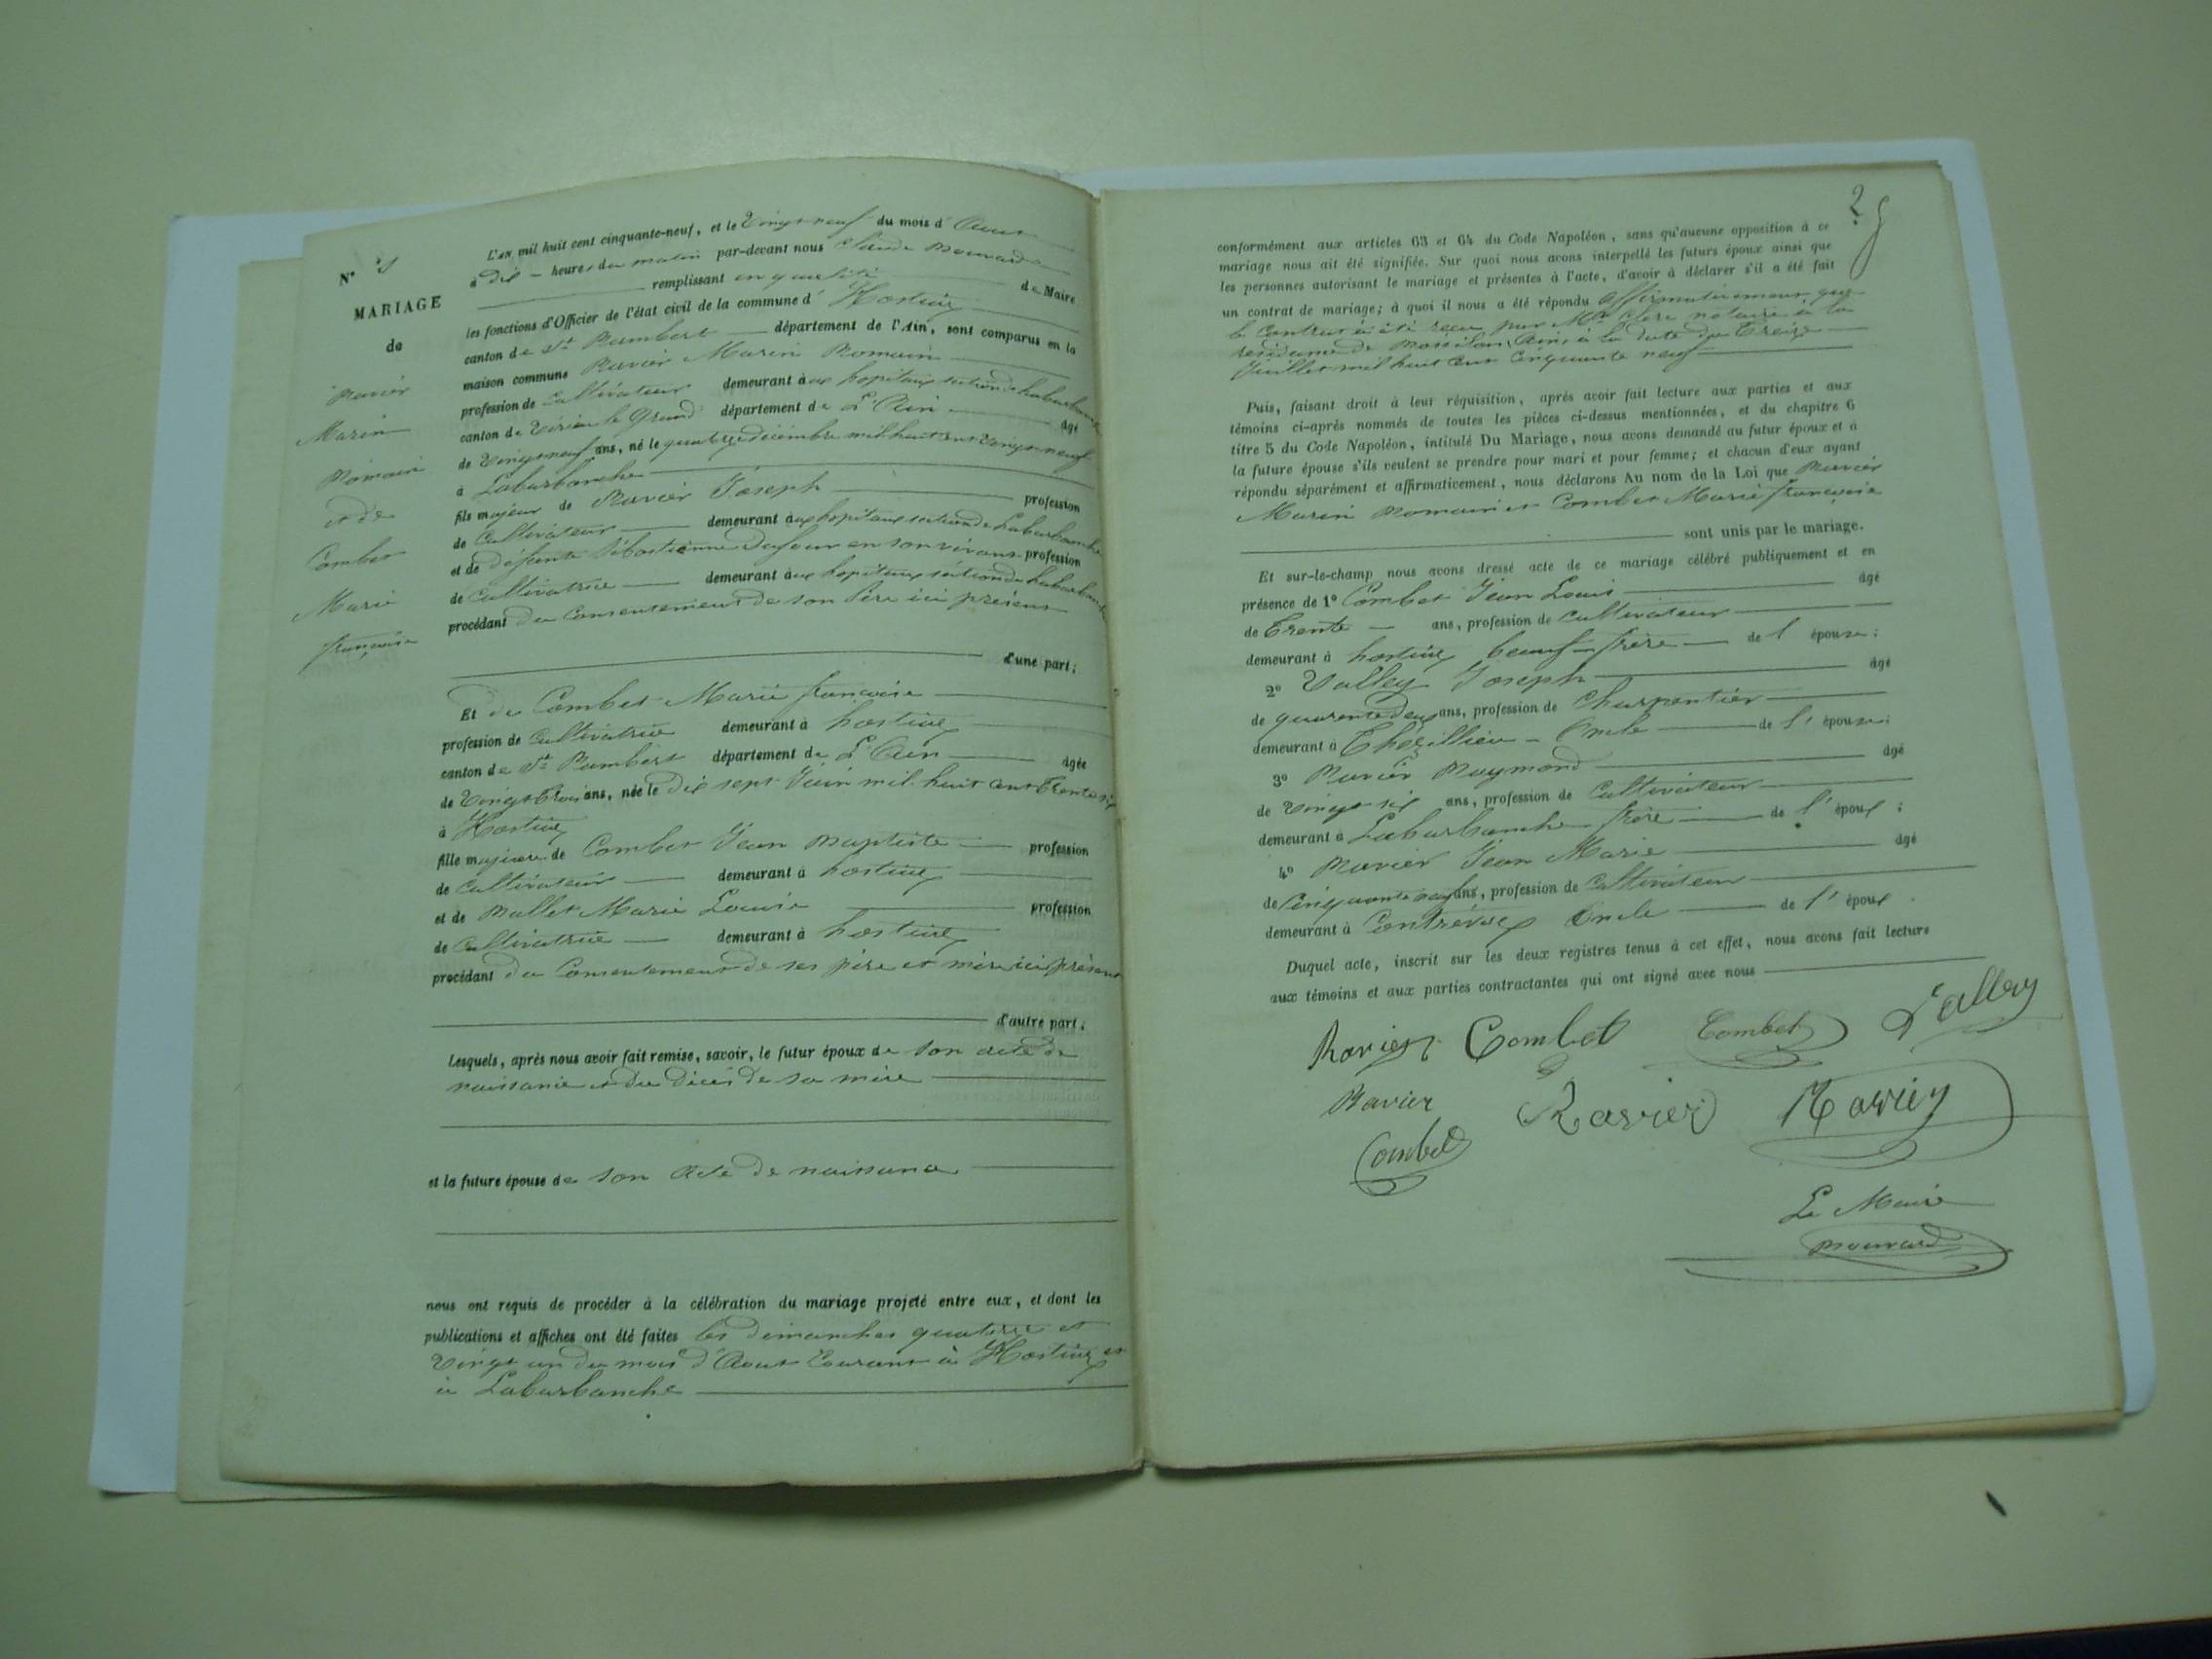 N°
MARIAGE
de
Ravier
Marin
Romain
et de
Combet
Marie
françoise
L'AN mil huit cent cinquante-neuf, et le Vingt neuf du mois d'Aout
à Dix heures du matin par-devant nous Claude Bouvard
remplissant en qualité de Maire
les fonctions d'Officier de l'état civil de la commune d' Hostiaz
canton de St Rambert département de l'Ain, sont comparus en la
maison commune Ravier Marin Romain
profession de Cultivateur demeurant aux hopitaux section de Laburbanche
canton de Virieu le Grand département de L'Ain âgé
de Vingt neuf ans, né le quatorze décembre mil huit cent vingt neuf
à Laburbanche
fils majeur de Ravier Joseph profession
de Cultivateur demeurant aux hopitaux section de Laburbanche
et de défunte Sébastienne Dufour en son vivant profession
de Cultivatrice demeurant aux hopitaux section de Laburbanche
procédant du Consentement de son Père ici présent
d'une part;
Et de Combet Marie françoise
profession de Cultivatrice demeurant à hostiaz
canton de St Rambert département de L'Ain âgée
de Vingt trois ans, née le Dix sept Juin mil huit cent trente six
à Hostiaz
fille majeure de Combet Jean Baptiste profession
de Cultivateur demeurant à hostiaz
et de Mallet Marie Louise profession
de Cultivatrice demeurant à hostiaz
procédant du Consentement de ses père et mère ici présent
d'autre part;
Lesquels, après nous avoir fait remise, savoir, le futur époux de son acte de
naissance et du décès de sa mère
et la future épouse de son acte de naissance
nous ont requis de procéder à la célébration du mariage projeté entre eux, et dont les
publications et affiches ont été faites les dimanches quatorze et
Vingt un du mois d'Aout Courant à Hostiaz et
à Laburbanche
conformément aux articles 63 et 64 du Code Napoléon, sans qu'aucune opposition à ce
mariage nous ait été signifiée. Sur quoi nous avons interpellé les futurs époux ainsi que
les personnes autorisant le mariage et présentes à l'acte, d'avoir à déclarer s'il a été fait
un contrat de mariage; à quoi il nous a été répondu affirmativement que
le Contrat a été reçu par Me Clerc notaire à la
residence de Rossilon, Ain, à la date du Treize
Juillet mil huit cent Cinquante neuf
Puis, faisant droit à leur réquisition, après avoir fait lecture aux parties et aux
témoins ci-après nommés de toutes les pièces ci-dessus mentionnées, et du chapitre 6
titre 5 du Code Napoléon, intitulé Du Mariage, nous avons demandé au futur époux et à
la future épouse s'ils veulent se prendre pour mari et pour femme; et chacun d'eux ayant
répondu séparément et affirmativement, nous déclarons Au nom de la Loi que Ravier
Marin Romain et Combet Marie françoise
sont unis par le mariage.
Et sur-le-champ nous avons dressé acte de ce mariage célébré publiquement et en
présence de 1° Combet Jean Louis âgé
de Trente ans, profession de Cultivateur
demeurant à hostiaz beauf-frère de l'épouse;
2° Valley Joseph âgé
de quarante deux ans, profession de Charpentier
demeurant à Thézillieu Oncle de l'épouse;
3° Ravier Raymond âgé
de Vingt six ans, profession de Cultivateur
demeurant à Laburbanche frère de l'époux;
4° Ravier Jean Marie âgé
de Cinquante neuf ans, profession de Cultivateur
demeurant à Contrevoz Oncle de l'époux.
Duquel acte, inscrit sur les deux registres tenus à cet effet, nous avons fait lecture
aux témoins et aux parties contractantes qui ont signé avec nous
Ravier Combet Combet Valley
Ravier Ravier Ravier
Combet
Le Maire
Bouvard